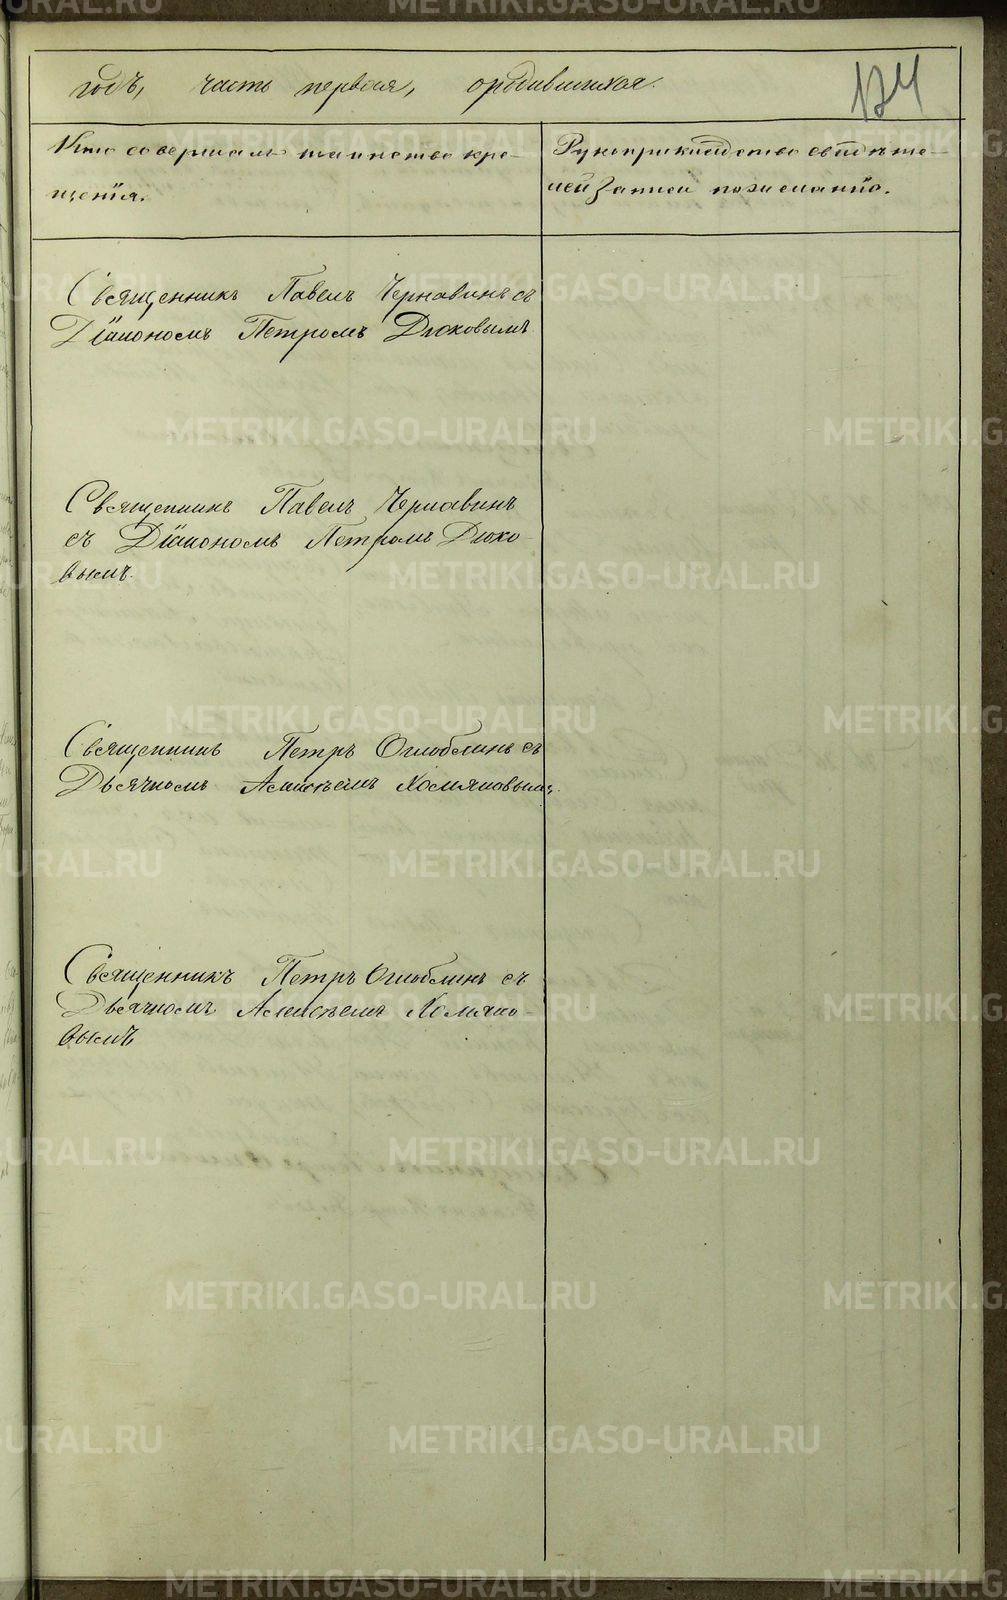 годъ, часть первая, ородившихся.
124
Кто совершалъ таинство кре-
щенія.
Рукоприкладство свидѣте-
лей записи по желанію.
Священникъ Павелъ Чернавинъ съ
Діакономъ Петромъ Дюковымъ
Священникъ Павелъ Чернавинъ
съ Діакономъ Петромъ Дюко-
вымъ.
Священникъ Петръ Оглоблинъ съ
Дьячкомъ Алексѣемъ Хомяковымъ.
Священникъ Петръ Оглоблинъ съ
Дьячкомъ Алексѣемъ Хомяко-
вымъ
METRIKI.GASO-URAL.RU